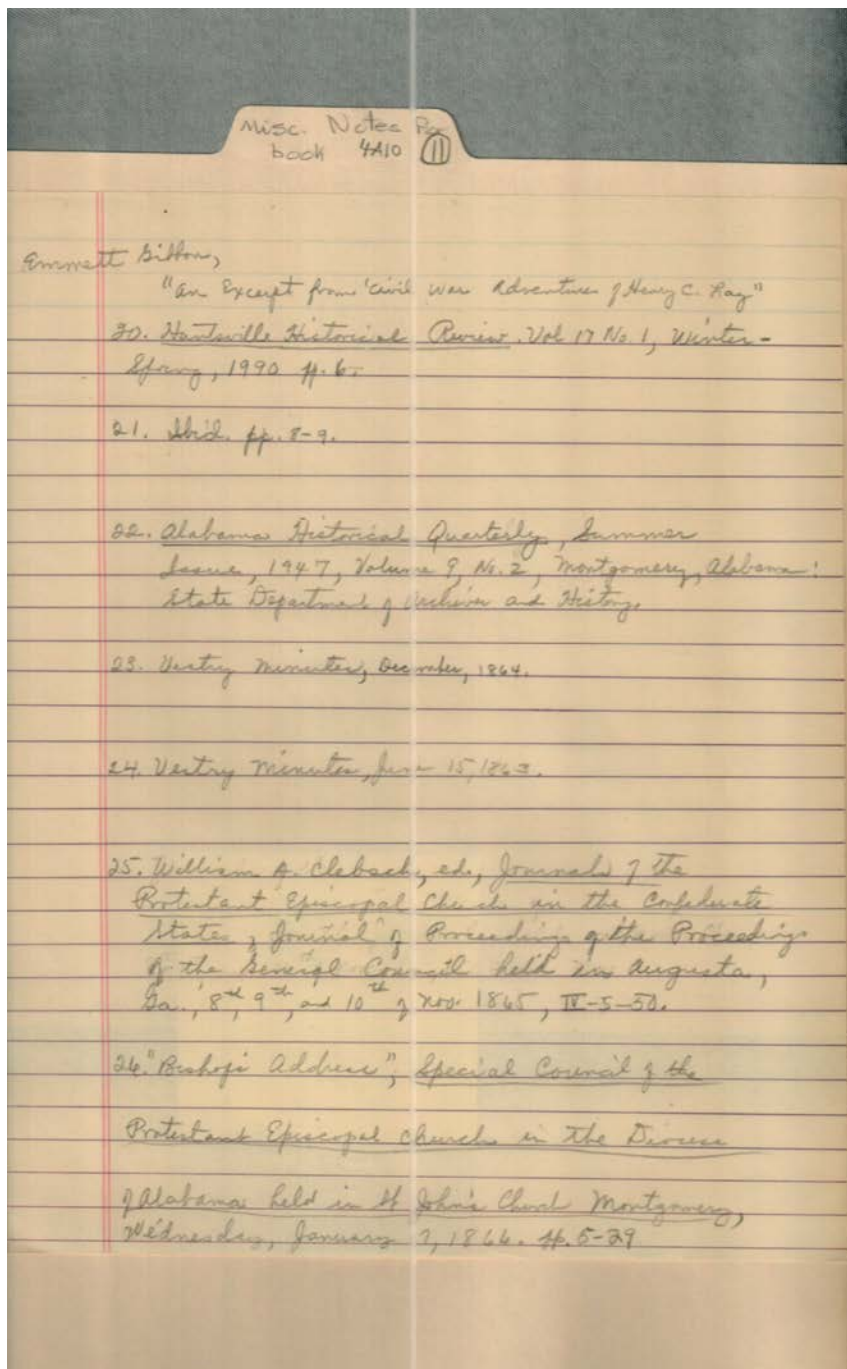 Misc. Notes Pg
book 4A10 11
Emmett Gibbon,
"An Excerpt from 'Civil War Adventures of Henry C. Lay"
20. Huntsville Historical Review. Vol 17 No. 1, Winter-
Spring, 1990 pp. 6.
21. Ibid. pp. 8-9.
22. Alabama Historical Quarterly, Summer
Issue, 1947, Volume 9, No. 2, Montgomery, Alabama:
State Department of Archives and History.
23. Vestry Minutes, December, 1864.
24. Vestry Minutes, June 15, 1863.
25. William A. Clebsch, ed., Journals of the
Protestant Episcopal Church in the Confederate
States, Journal of Proceedings of the Proceedings
of the General Council held in Augusta,
Ga., 8th, 9th, and 10th of Nov. 1865, IV-5-50.
26. "Bishop's Address", Special Council of the
Protestant Episcopal Church in the Diocese
of Alabama held in St John's Church Montgomery,
Wednesday, January 1866. pp. 5-29